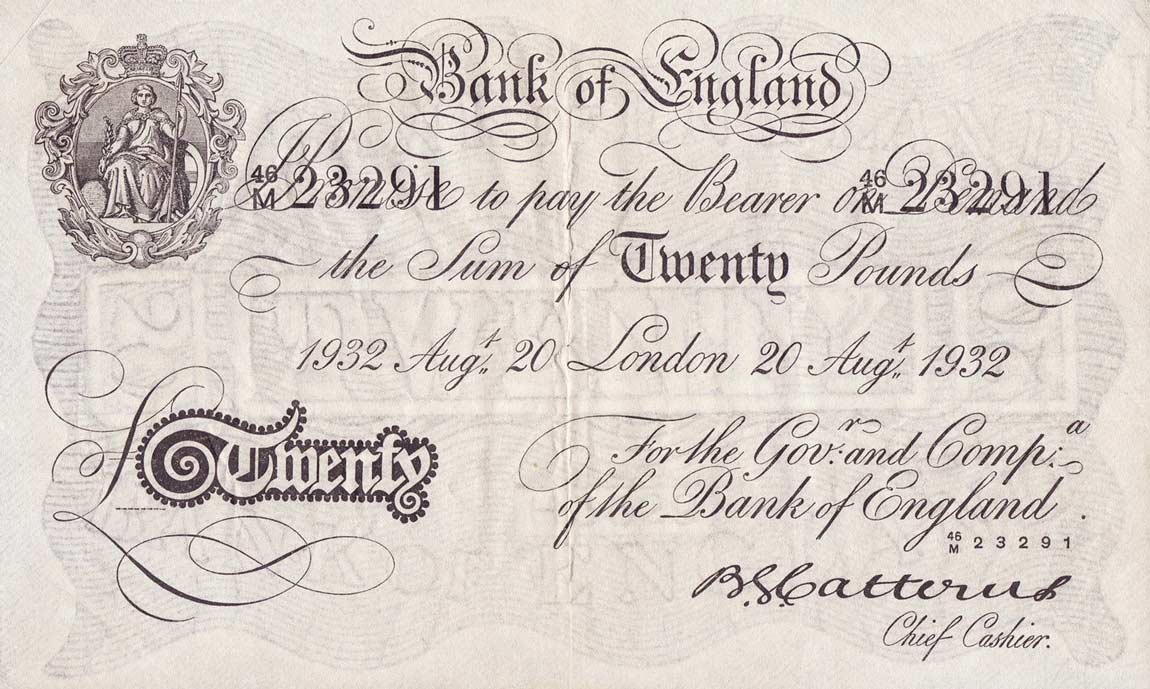 Bank of England
46/M 23291 46/M 23291
Promise to pay the Bearer on Demand
the Sum of Twenty Pounds
1932 Augt. 20 London 20 Augt. 1932
£Twenty
For the Govr. and Compa.
of the Bank of England.
46/M 23291
B.G. Catterns
Chief Cashier.